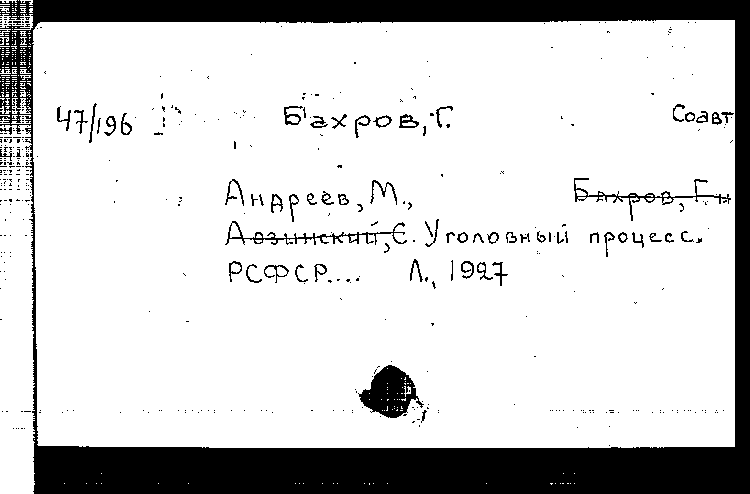 47/196 Бахров, Г. Соавт
Андреев, М., Бахров, Г. и
Лозинский, С. Уголовный процесс.
РСФСР.... Л., 1927